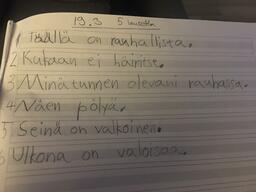 19.3 5 lausetta
1 Täällä on rauhallista.
2 Kukaan ei häiritse.
3 Minä tunnen olevani rauhassa.
4 Näen pölyä.
5 Seinä on valkoinen.
6 Ulkona on valoisaa.